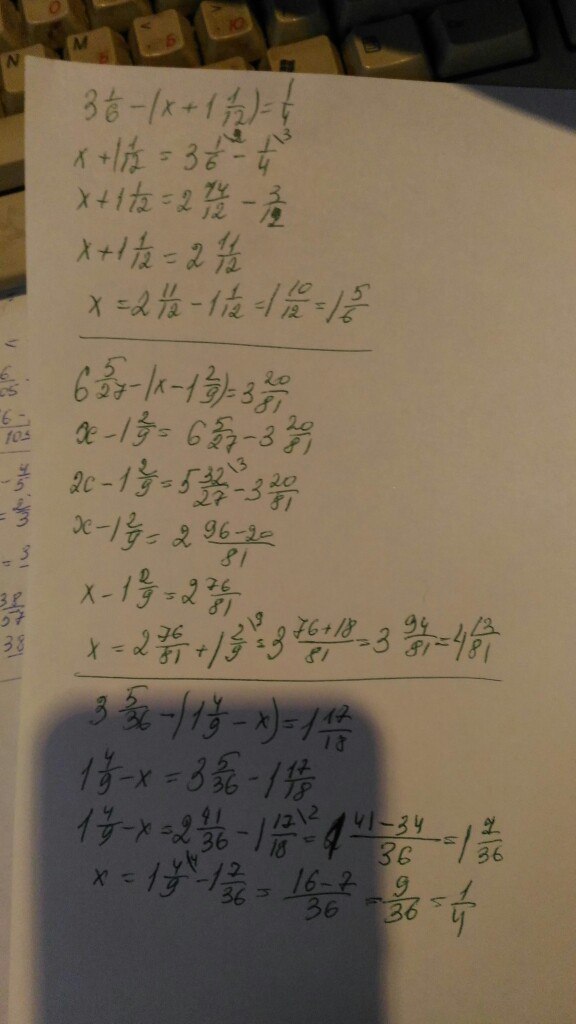 3 1/6 - (x + 1 1/12) = 1/4
x + 1 1/12 = 3 1/6 \2 - 1/4 \3
x + 1 1/12 = 2 14/12 - 3/12
x + 1 1/12 = 2 11/12
x = 2 11/12 - 1 1/12 = 1 10/12 = 1 5/6
6 5/27 - (x - 1 2/9) = 3 20/81
x - 1 2/9 = 6 5/27 - 3 20/81
x - 1 2/9 = 5 32/27 \3 - 3 20/81
x - 1 2/9 = 2 96-20/81
x - 1 2/9 = 2 76/81
x = 2 76/81 + 1 2/9 \9 = 3 76+18/81 = 3 94/81 = 4 13/81
3 5/36 - (1 4/9 - x) = 1 17/18
1 4/9 - x = 3 5/36 - 1 17/18
1 4/9 - x = 2 41/36 - 1 17/18 \2 = 1 41-34/36 = 1 7/36
x = 1 4/9 \4 - 1 7/36 = 16-7/36 = 9/36 = 1/4